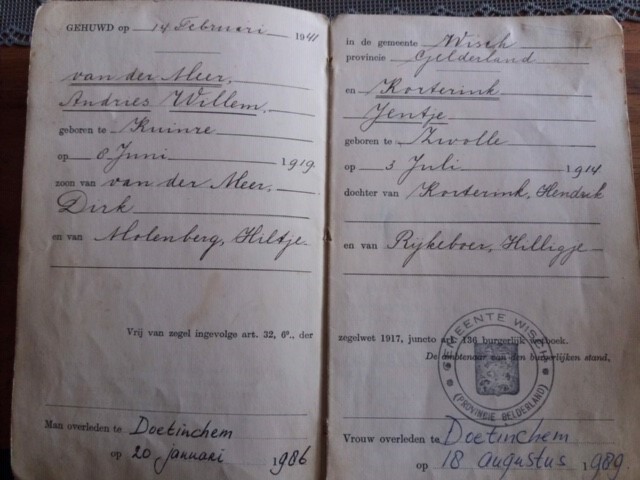 GEHUWD op 14 Februari 1941
van der Meer,
Andries Willem,
geboren te Kuinre
op 8 Juni 1919
zoon van van der Meer,
Dirk
en van Molenberg, Hiltje
Vrij van zegel ingevolge art. 32, 6º., der
Man overleden te Doetinchem
op 20 januari 1986
in de gemeente Wisch
provincie Gelderland
en Korterink
Jentje
geboren te Zwolle
op 3 Juli 1914
dochter van Korterink, Hendrik
en van Rijkeboer, Hilligje
zegelwet 1917, juncto art. 136 burgerlijk wetboek.
De ambtenaar van den burgerlijken stand,
GEMEENTE WISCH
(PROVINCIE GELDERLAND)
Vrouw overleden te Doetinchem
op 18 augustus 1989.